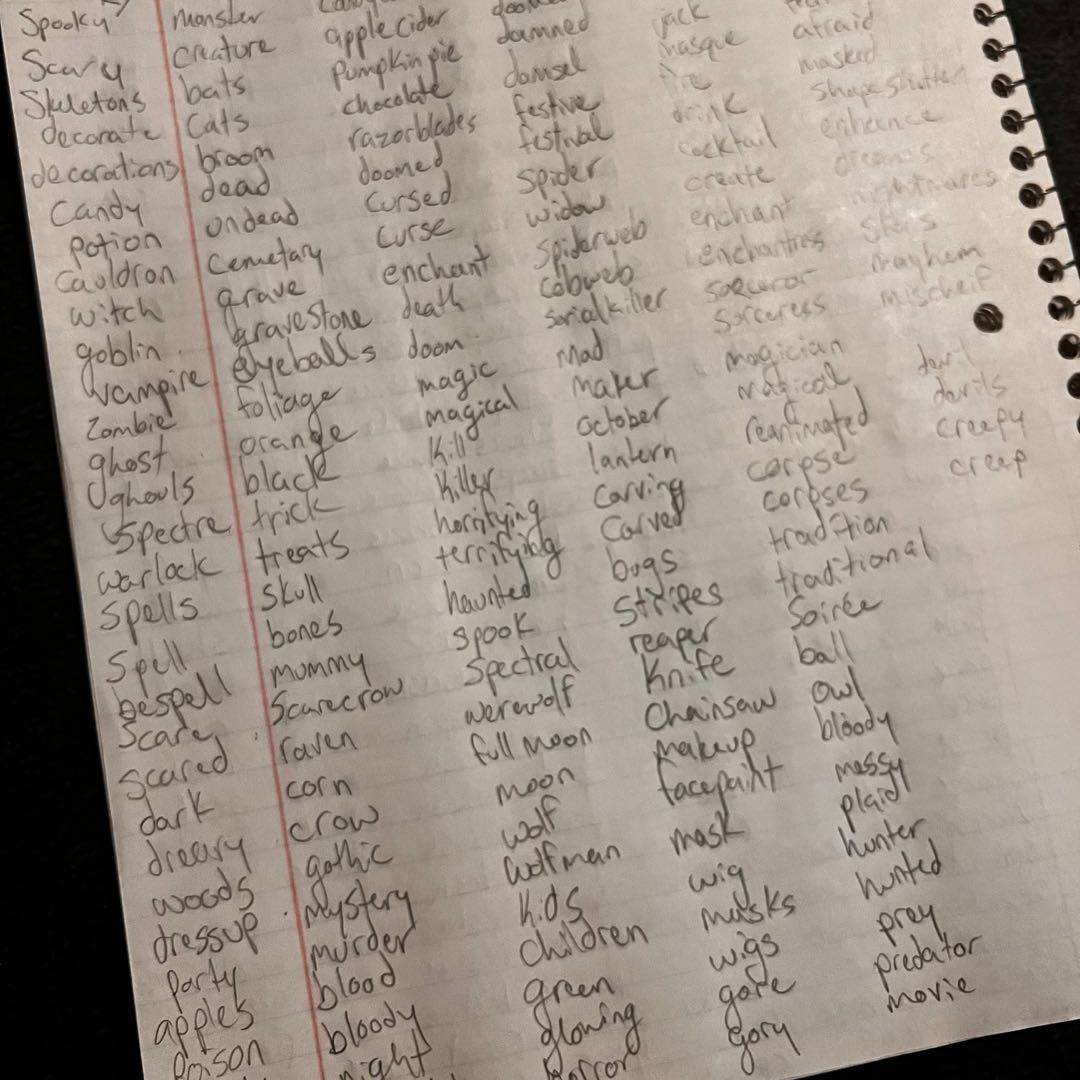 Spooky
Scary
Skeletons
decorate
decorations
Candy
potion
Cauldron
witch
goblin
vampire
Zombie
ghost
ghouls
Spectre
warlock
Spells
Spell
bespell
Scare
Scared
dark
dreary
woods
dressup
party
apples
poison
monster
creature
bats
Cats
broom
dead
undead
Cemetary
grave
gravestone
eyeballs
foliage
orange
black
trick
treats
skull
bones
mummy
Scarecrow
raven
corn
crow
gothic
mystery
murder
blood
bloody
night
apple cider
pumpkin pie
chocolate
razorblades
doomed
cursed
curse
enchant
death
doom
magic
magical
Kill
Killer
horrifying
terrifying
haunted
spook
Spectral
werewolf
full moon
moon
wolf
wolfman
Kids
Children
green
glowing
horror
damned
damsel
festive
festival
spider
widow
spiderweb
cobweb
serialkiller
mad
maker
october
lantern
carving
carved
bugs
stripes
reaper
Knife
Chainsaw
makeup
facepaint
mask
wig
masks
wigs
gore
gory
jack
masque
drink
cocktail
create
enchant
enchantress
sorceror
sorceress
magician
magical
reanimated
corpse
corpses
tradition
traditional
Soirée
ball
owl
bloody
messy
plaid
hunter
hunted
prey
predator
movie
afraid
masked
enhance
dreams
nightmares
mayhem
mischeif
devil
devils
creepy
creep